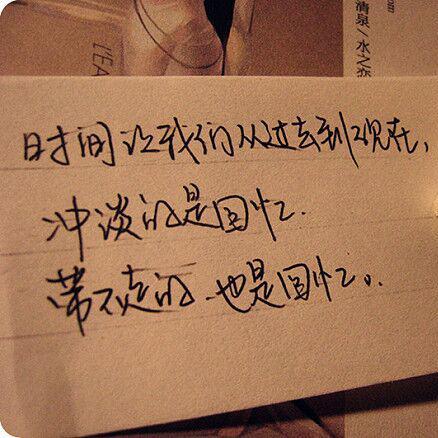 清泉/水
LEA
时间让我们从过去到现在,
冲淡的是回忆.
带不走的.也是回忆。